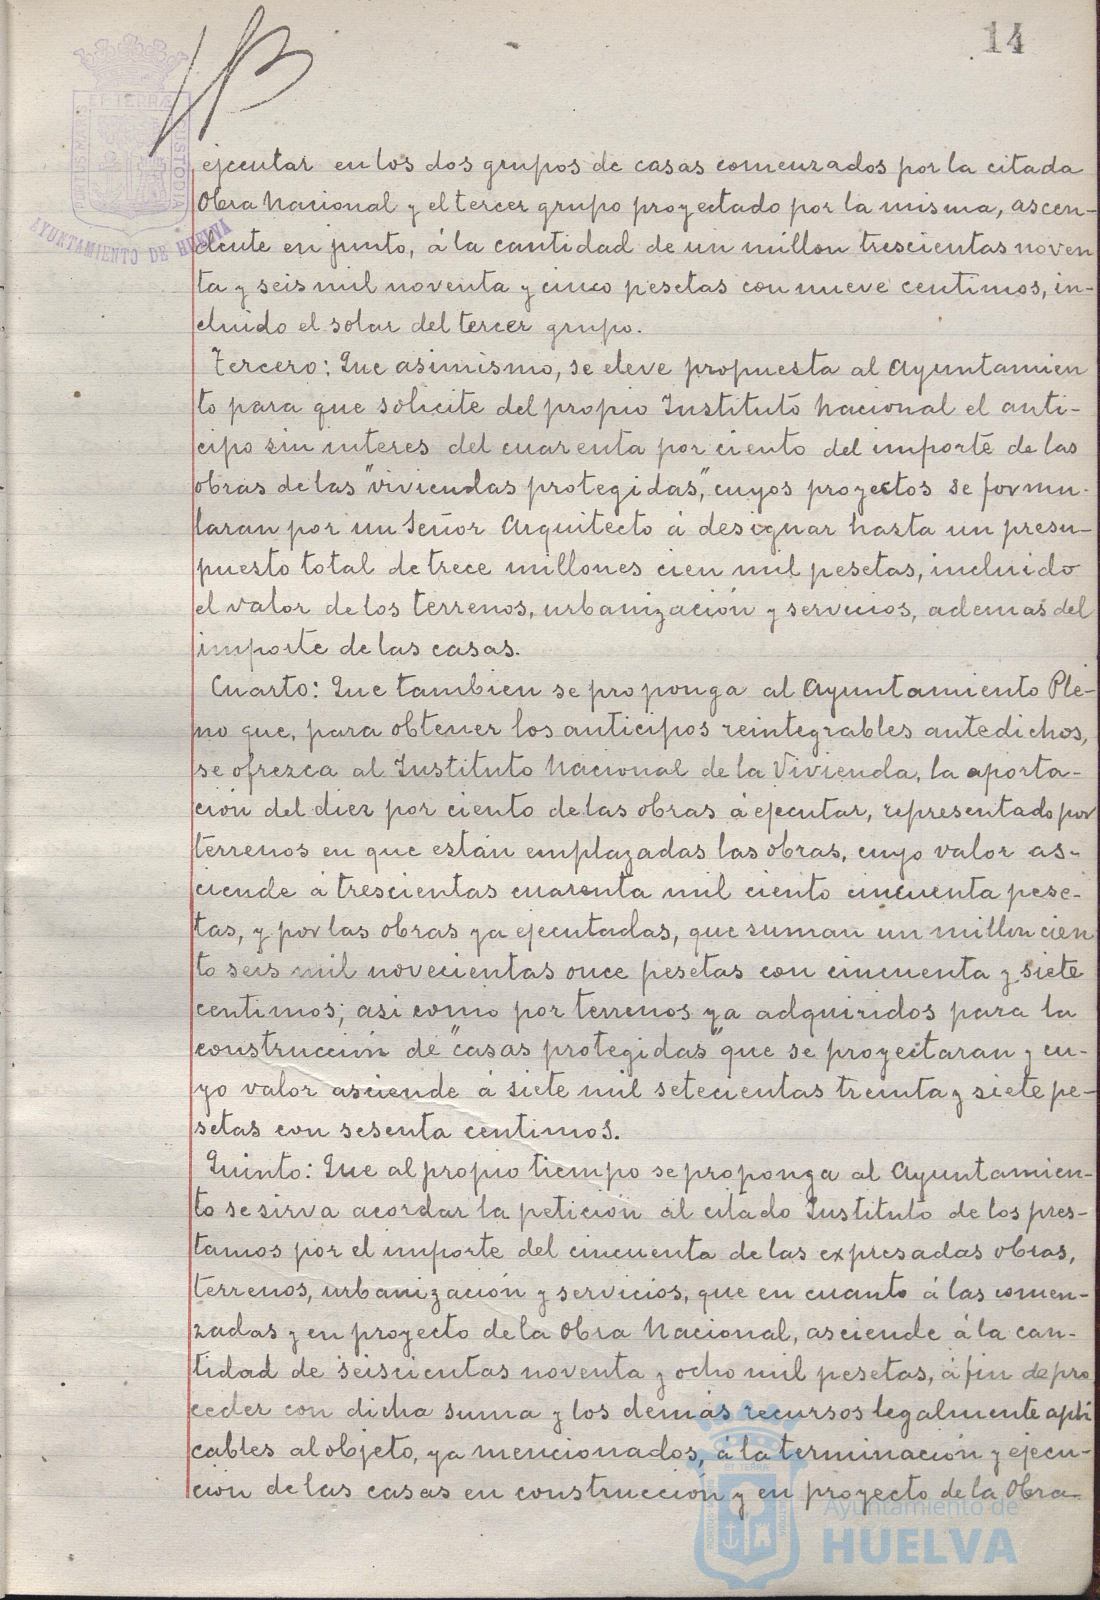 14
ejecutar en los dos grupos de casas comenzados por la citada
Obra Nacional y el tercer grupo proyectado por la misma, ascen-
dente en junto, á la cantidad de un millon trescientas noven
ta y seis mil noventa y cinco pesetas con nueve centimos, in-
cluido el solar del tercer grupo.
Tercero: Que asimismo, se eleve propuesta al Ayuntamien
to para que solicite del propio Instituto Nacional el anti-
cipo sin interes del cuarenta por ciento del importe de las
obras de las "viviendas protegidas", cuyos proyectos se formu-
laran por un Señor Arquitecto á designar hasta un presu-
puesto total de trece millones cien mil pesetas, incluido
el valor de los terrenos, urbanización y servicios, ademas del
importe de las casas.
Cuarto: Que tambien se proponga al Ayuntamiento Ple-
no que, para obtener los anticipos reintegrables antedichos,
se ofrezca al Instituto Nacional de la Vivienda, la aporta-
ción del diez por ciento de las obras á ejecutar, representado por
terrenos en que están emplazadas las obras, cuyo valor as-
ciende á trescientas cuarenta mil ciento cincuenta pese-
tas, y por las obras ya ejecutadas, que suman un millon cien
to seis mil novecientas once pesetas con cincuenta y siete
centimos; asi como por terrenos ya adquiridos para la
construcción de "casas protegidas" que se proyectaran y cu-
yo valor asciende á siete mil setecientas treinta y siete pe-
setas con sesenta centimos.
Quinto: Que al propio tiempo se proponga al Ayuntamien-
to se sirva acordar la petición al citado Instituto de los pres-
tamos por el importe del cincuenta de las expresadas obras,
terrenos, urbanización y servicios, que en cuanto á las comen-
zadas y en proyecto de la Obra Nacional, asciende á la can-
tidad de seiscientas noventa y ocho mil pesetas, á fin de pro
ceder con dicha suma y los demás recursos legalmente apli
cables al objeto, ya mencionados, á la terminación y ejecu-
ción de las casas en construcción y en proyecto de la Obra
AYUNTAMIENTO DE HUELVA
Ayuntamiento de
HUELVA